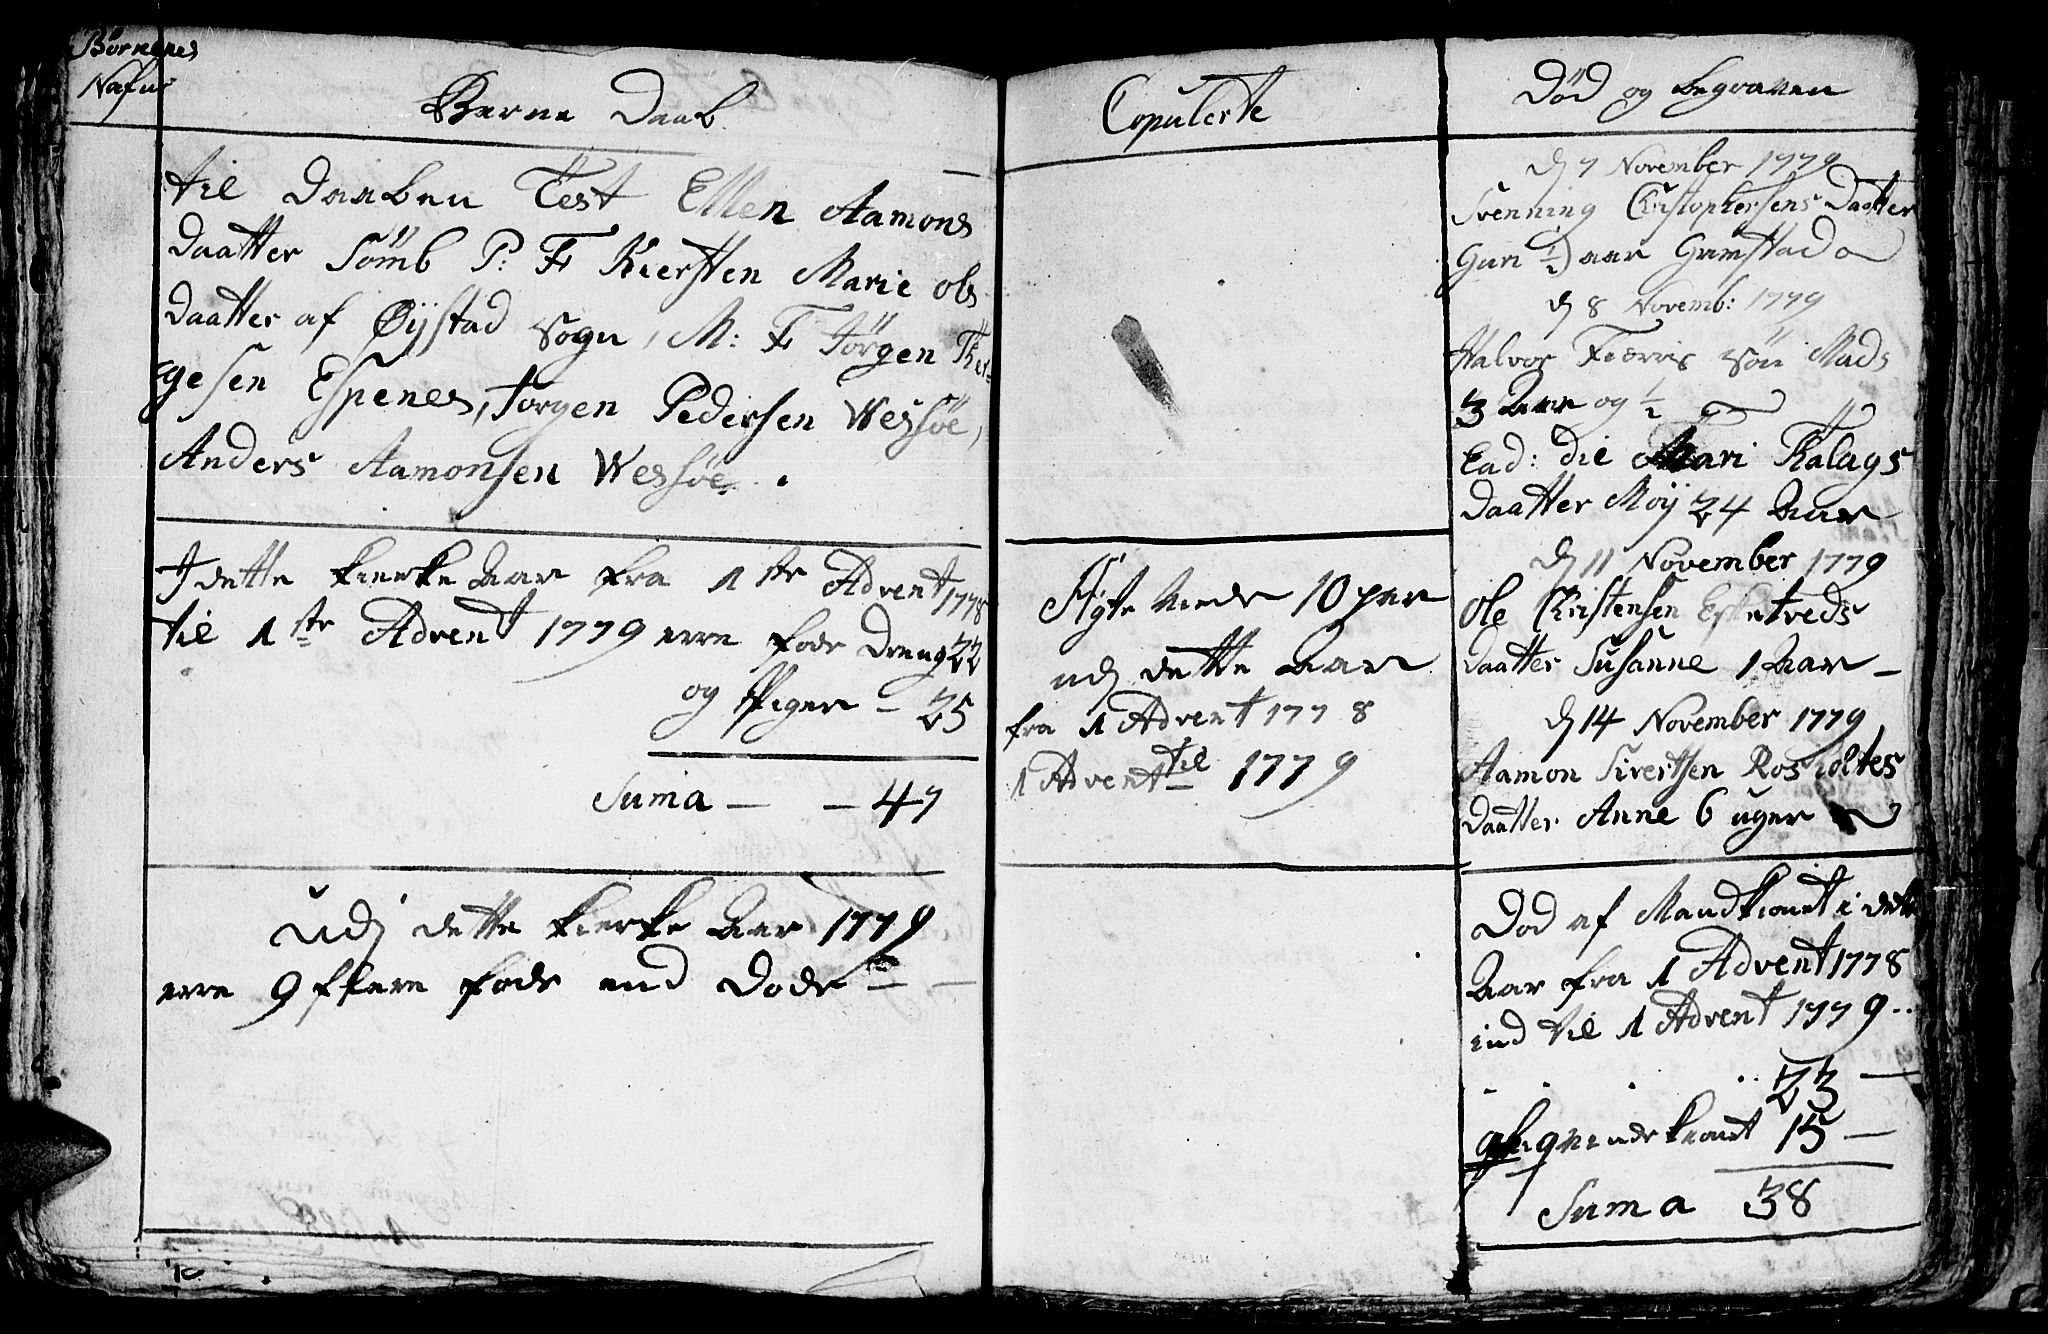 Børnenes
Nafne
Berne Daab.
til Daaben Test Ellen Aamons
Daatter Sømb P: F Kiersten Marie ols
Daatter af Øijstad Sogn, M: F Jörgen Ther=
gesen Espenes, Jorgen Pedersen Wessøe,
Anders Aamonsen Wessøe.
I dette Kierke Aar fra 1ste Advent 1778
til 1ste Advent 1779 ere føde Dreng 22
og Piger – 25
Suma – – 47
Udj dette Kierke Aar 1779
ere 9 flere føde end Døde –
Copulerte
Ægte Viede 10 par
udj dette Aar
fra 1 Advent 1778
til
1 Advent 1779
Død og begraven
d 7 November 1779
Svenning Christophersens Daatter
Guri ½ aar Grimstad
d 8 Novemb: 1779
Halvor Fiervis Søn Mads
3 Aar og ½
Ead: die Mari Tkalags
Daatter Moij 24 Aar
d 11 November 1779
Ole Christensen Esketveds
Daatter Susanne 1 Aar –
d 14 November 1779
Aamon Sivertsen Rosholtes
Daatter Anne 6 uger
Dod af Mandkionet i dette
Aar fra 1 Advent 1778
ind til 1 Advent 1779 ..
. . . .. 23 –
qvindekionet 15 –
Suma 38